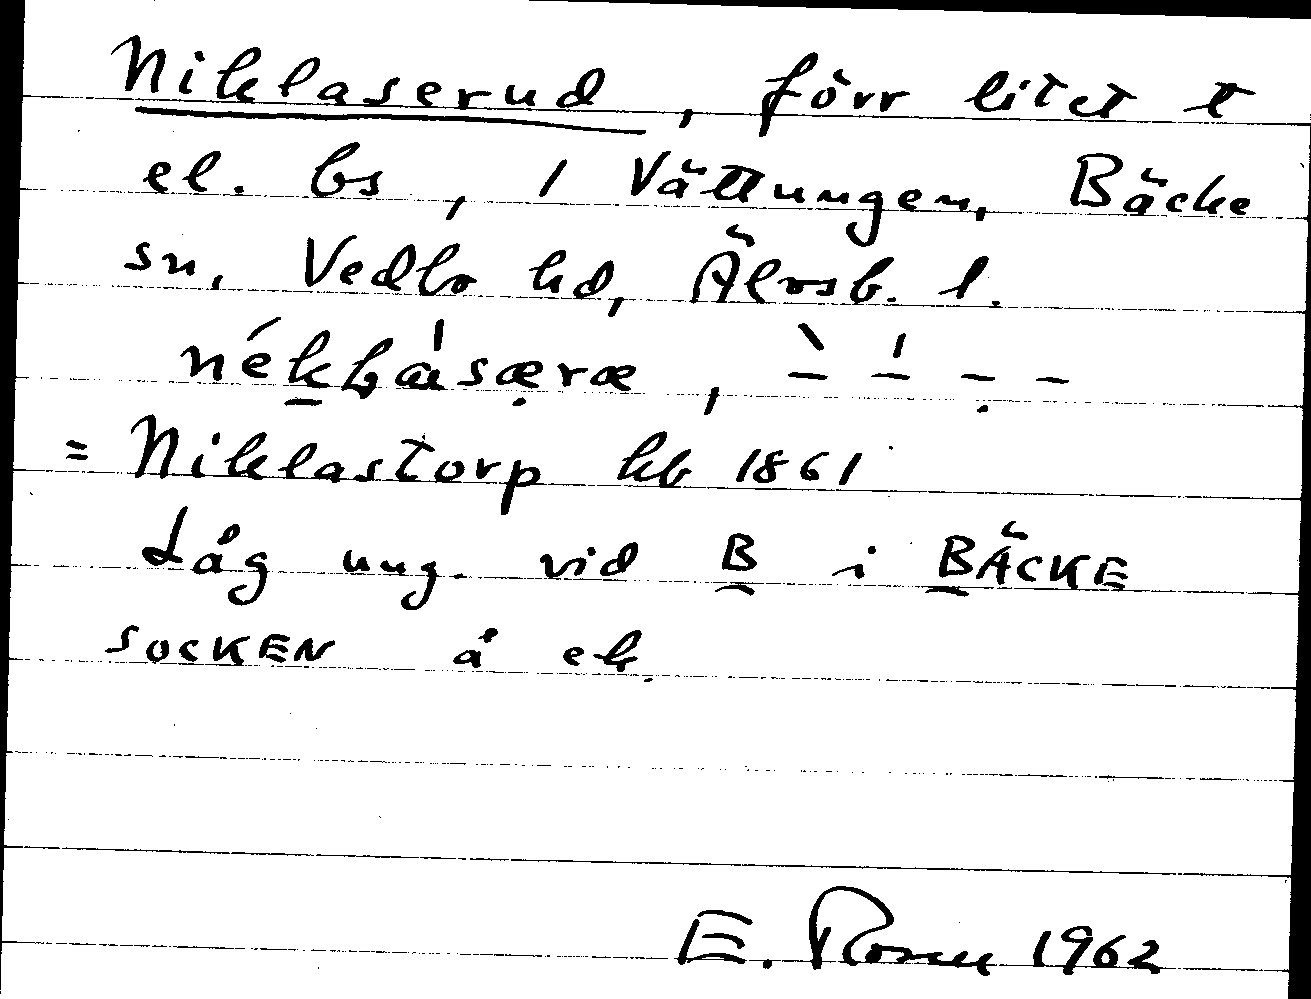 Niklaserud, förr litet t
el. bs, 1 Vättungen, Bäcke
sn, Vedbo hd, Älvsb. l.
= Niklastorp kb 1861
Låg ung. vid B i BÄCKE
SOCKEN å ek.
E. Rosell 1962